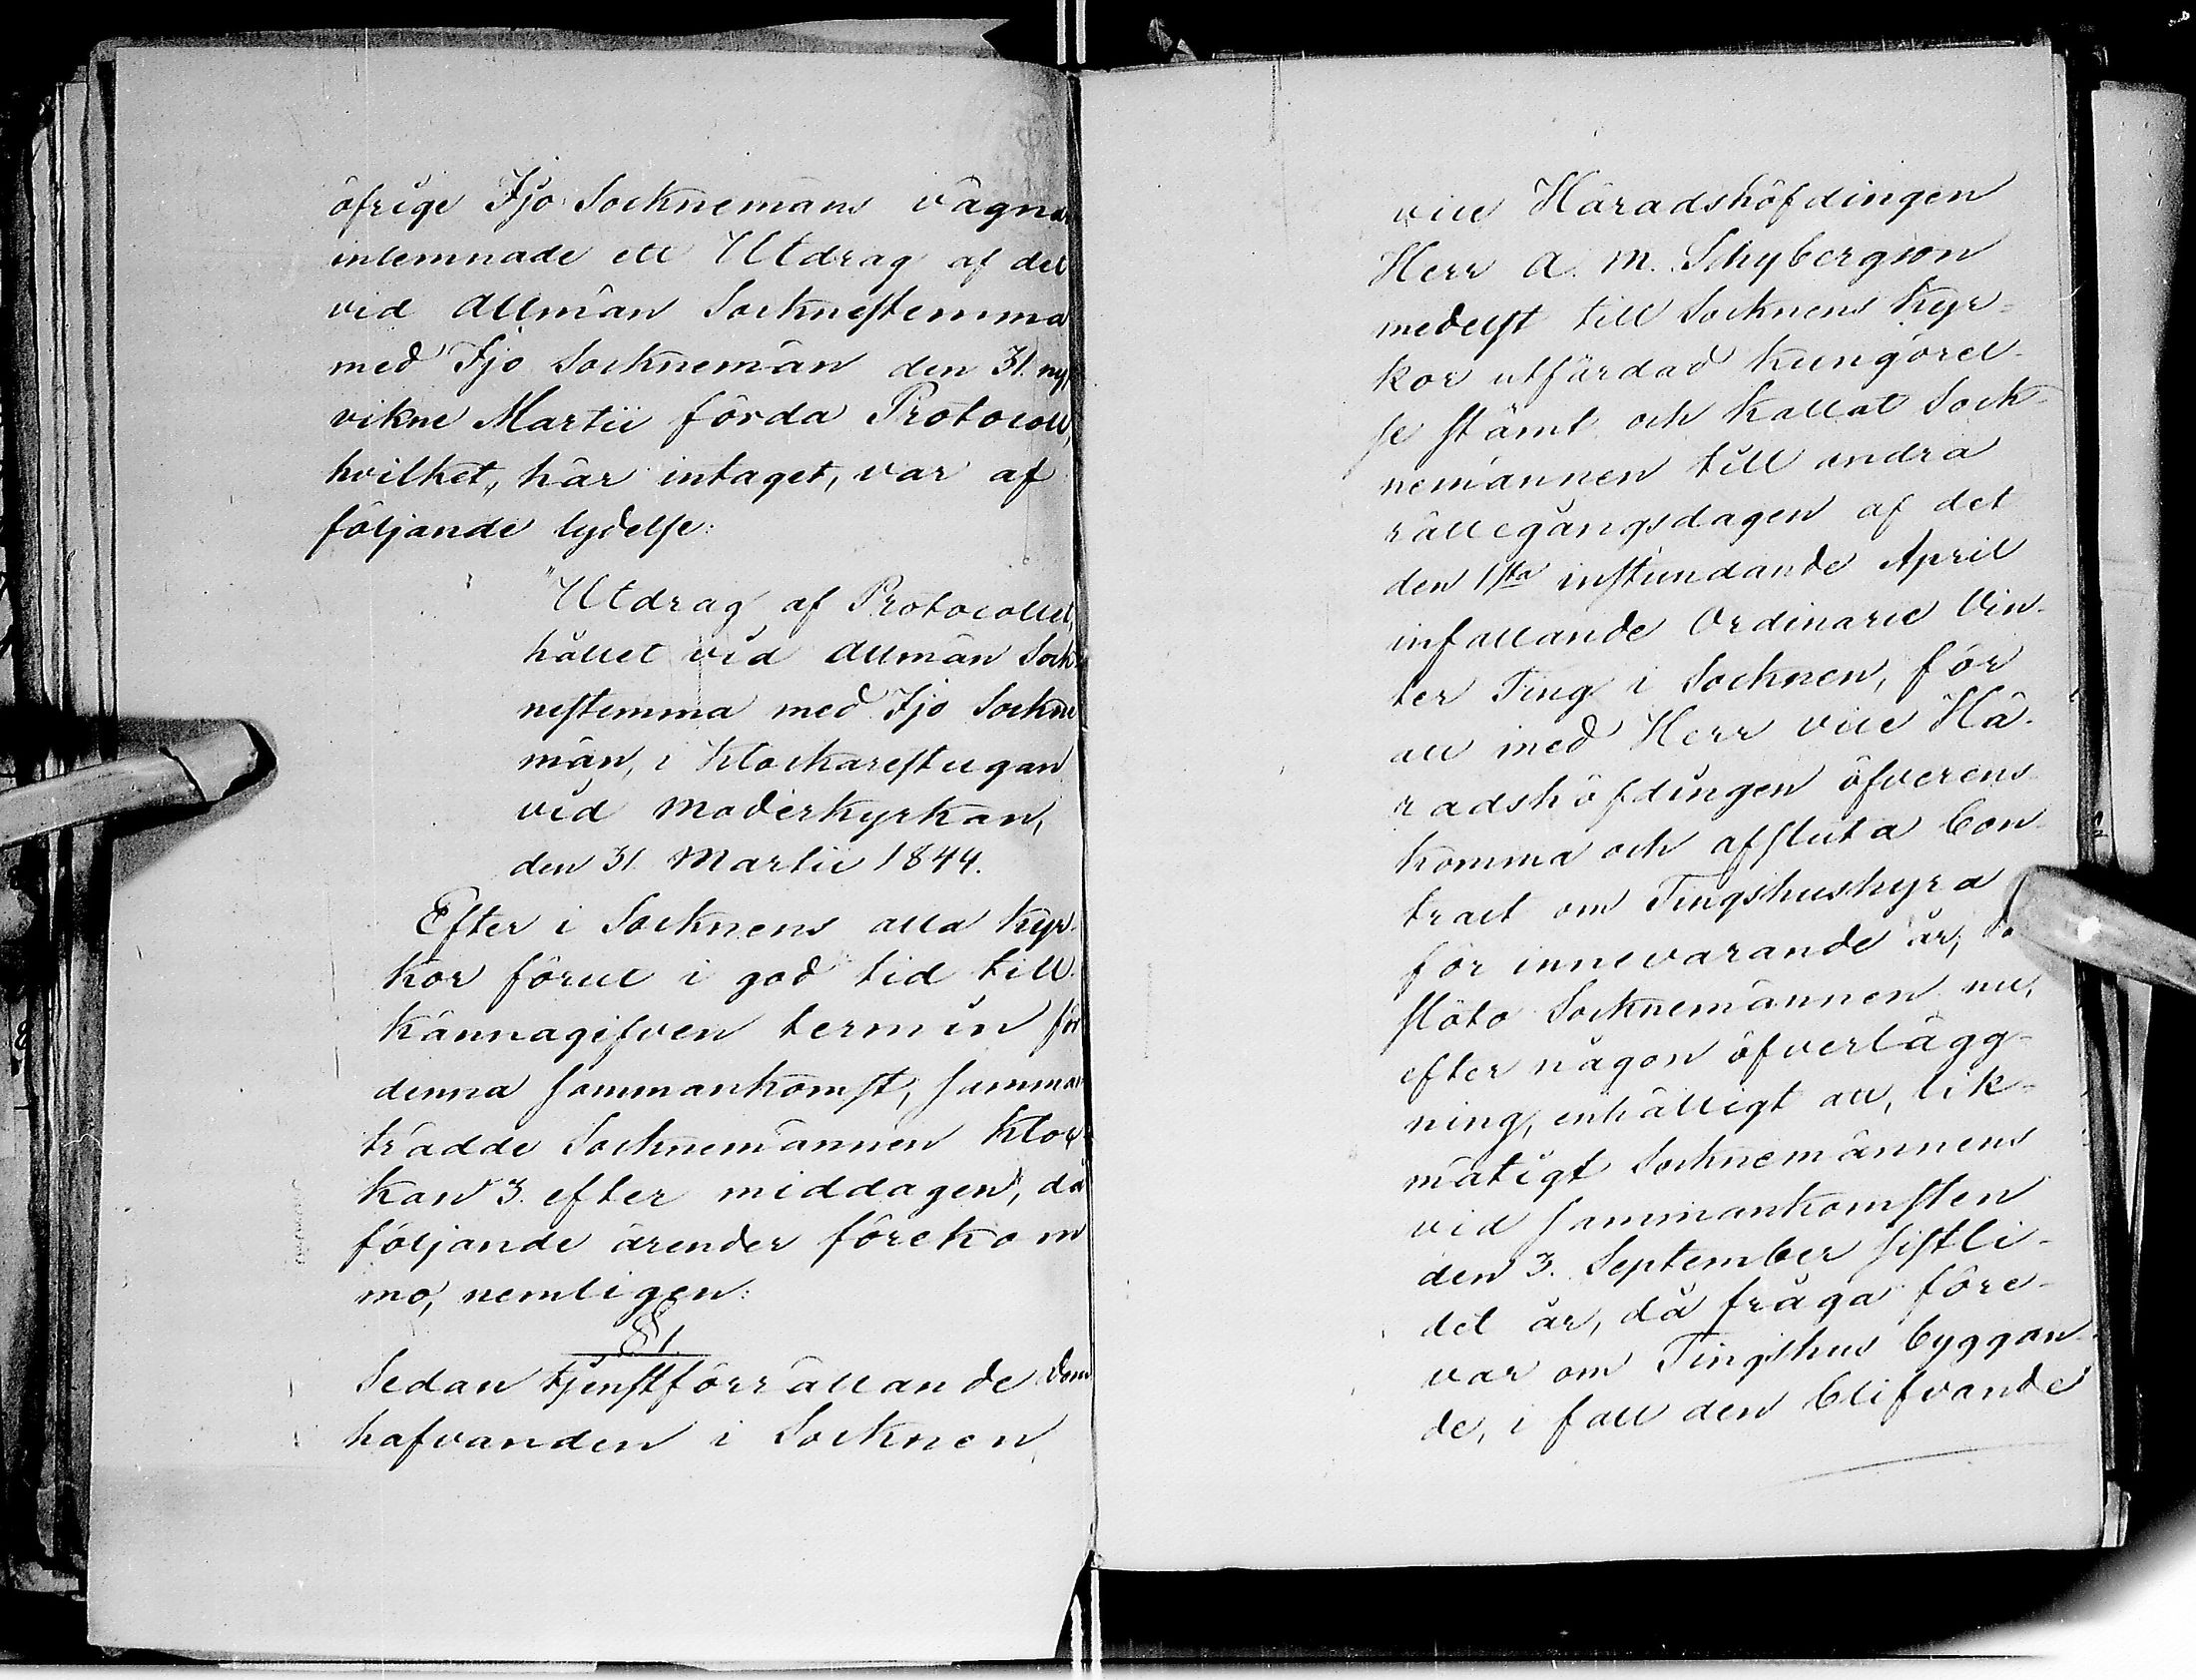 öfrige Ijo Socknemäns vägna
inlemnade ett Utdrag af det
vid allmän Socknestemma
med Ijo Socknemän den 31. ny
vikne Martii förda Protocoll,
hvilket, här intaget, var af
följande lydelse:
"Utdrag af Protocollet,
hållet vid allmän Sock
nestemma med Ijo Sockne
män, i Klockarestugan
vid moderkyrkan,
den 31. Martii 1844.
Efter i Socknens alla kyr-
kor förut i god tid till
kännagifven termin för
denna sammankomst, samman
trädde Socknemännen kloc
kan 3. efter middagen, då
följande ärender förekom
mo, nemligen:
§ 1.
Sedan tjenstförrättande dom
hafvanden i Socknen,
vice Häradshöfdingen
Herr A. M. Schybergson
medelst till Socknens kyr-
kor utfärdad kungörel-
se stämt och kallat Sock-
nemännen till andra
rättegångsdagen af det
den 1sta instundande April
infallande Ordinarie Vin-
ter Ting i Socknen, för
att med Herr vice Hä-
radshöfdingen öfverens
komma och afsluta Con-
tract om Tingshushyra
för innevarande år,
slöto Socknemännen nu,
efter någon öfverlägg-
ning, enhälligt att, lik-
mätigt Socknemännens
vid sammankomsten
den 3. September sistli-
det år, då fråga före-
var om Tingshus byggan-
de, i fall den blifvande